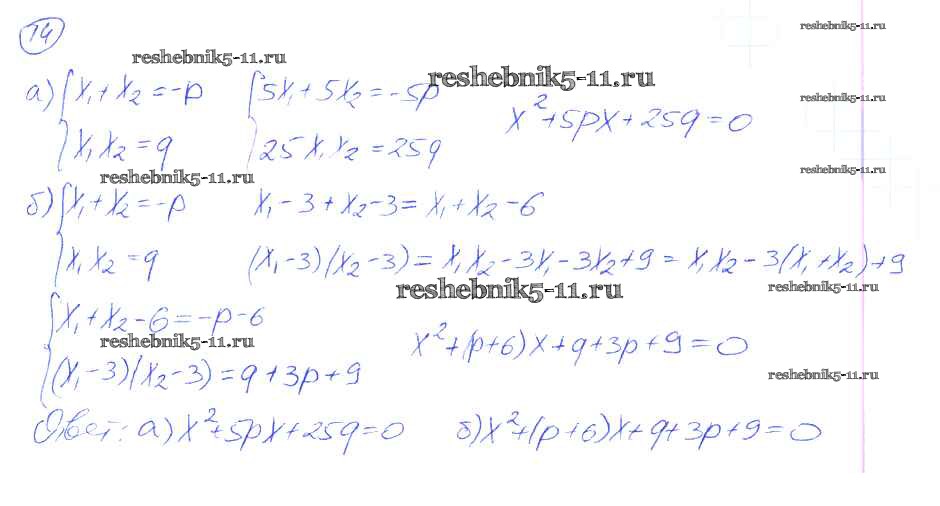 14
reshebnik5-11.ru
reshebnik5-11.ru
reshebnik5-11.ru
а) { x₁ + x₂ = -p { 5x₁ + 5x₂ = -5p
x₁x₂ = q 25x₁x₂ = 25q
x² + 5px + 25q = 0
reshebnik5-11.ru
reshebnik5-11.ru
reshebnik5-11.ru
б) { x₁ + x₂ = -p x₁ - 3 + x₂ - 3 = x₁ + x₂ - 6
x₁x₂ = q (x₁ - 3)(x₂ - 3) = x₁x₂ - 3x₁ - 3x₂ + 9 = x₁x₂ - 3(x₁ + x₂) + 9
reshebnik5-11.ru
reshebnik5-11.ru
{ x₁ + x₂ - 6 = -p - 6
reshebnik5-11.ru
(x₁ - 3)(x₂ - 3) = q + 3p + 9
x² + (p + 6)x + q + 3p + 9 = 0
reshebnik5-11.ru
Ответ: а) x² + 5px + 25q = 0 б) x² + (p + 6)x + q + 3p + 9 = 0